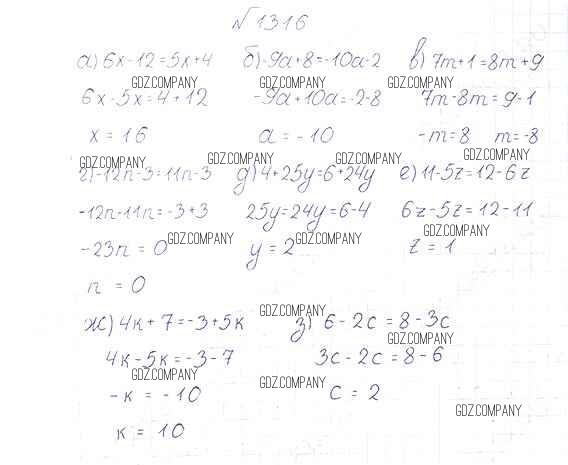 №1316
а) 6x-12=5x+4 б)-9a+8=-10a-2 в) 7m+1=8m+9
GDZ.COMPANY GDZ.COMPANY GDZ.COMPANY
6x-5x=4+12 -9a+10a=-2-8 7m-8m=9-1
x=16 a=-10 -m=8 m=-8
GDZ.COMPANY GDZ.COMPANY GDZ.COMPANY GDZ.COMPANY
г)-12n-3=11n-3 д) 4+25y=6+24y е) 11-5z=12-6z
-12n-11n=-3+3 25y=24y=6-4 6z-5z=12-11
GDZ.COMPANY GDZ.COMPANY GDZ.COMPANY
-23n=0 y=2 z=1
n=0
GDZ.COMPANY
ж) 4к+7=-3+5к з) 6-2c=8-3c
GDZ.COMPANY
4к-5к=-3-7 3c-2c=8-6
GDZ.COMPANY GDZ.COMPANY
-к=-10 c=2
GDZ.COMPANY
к=10